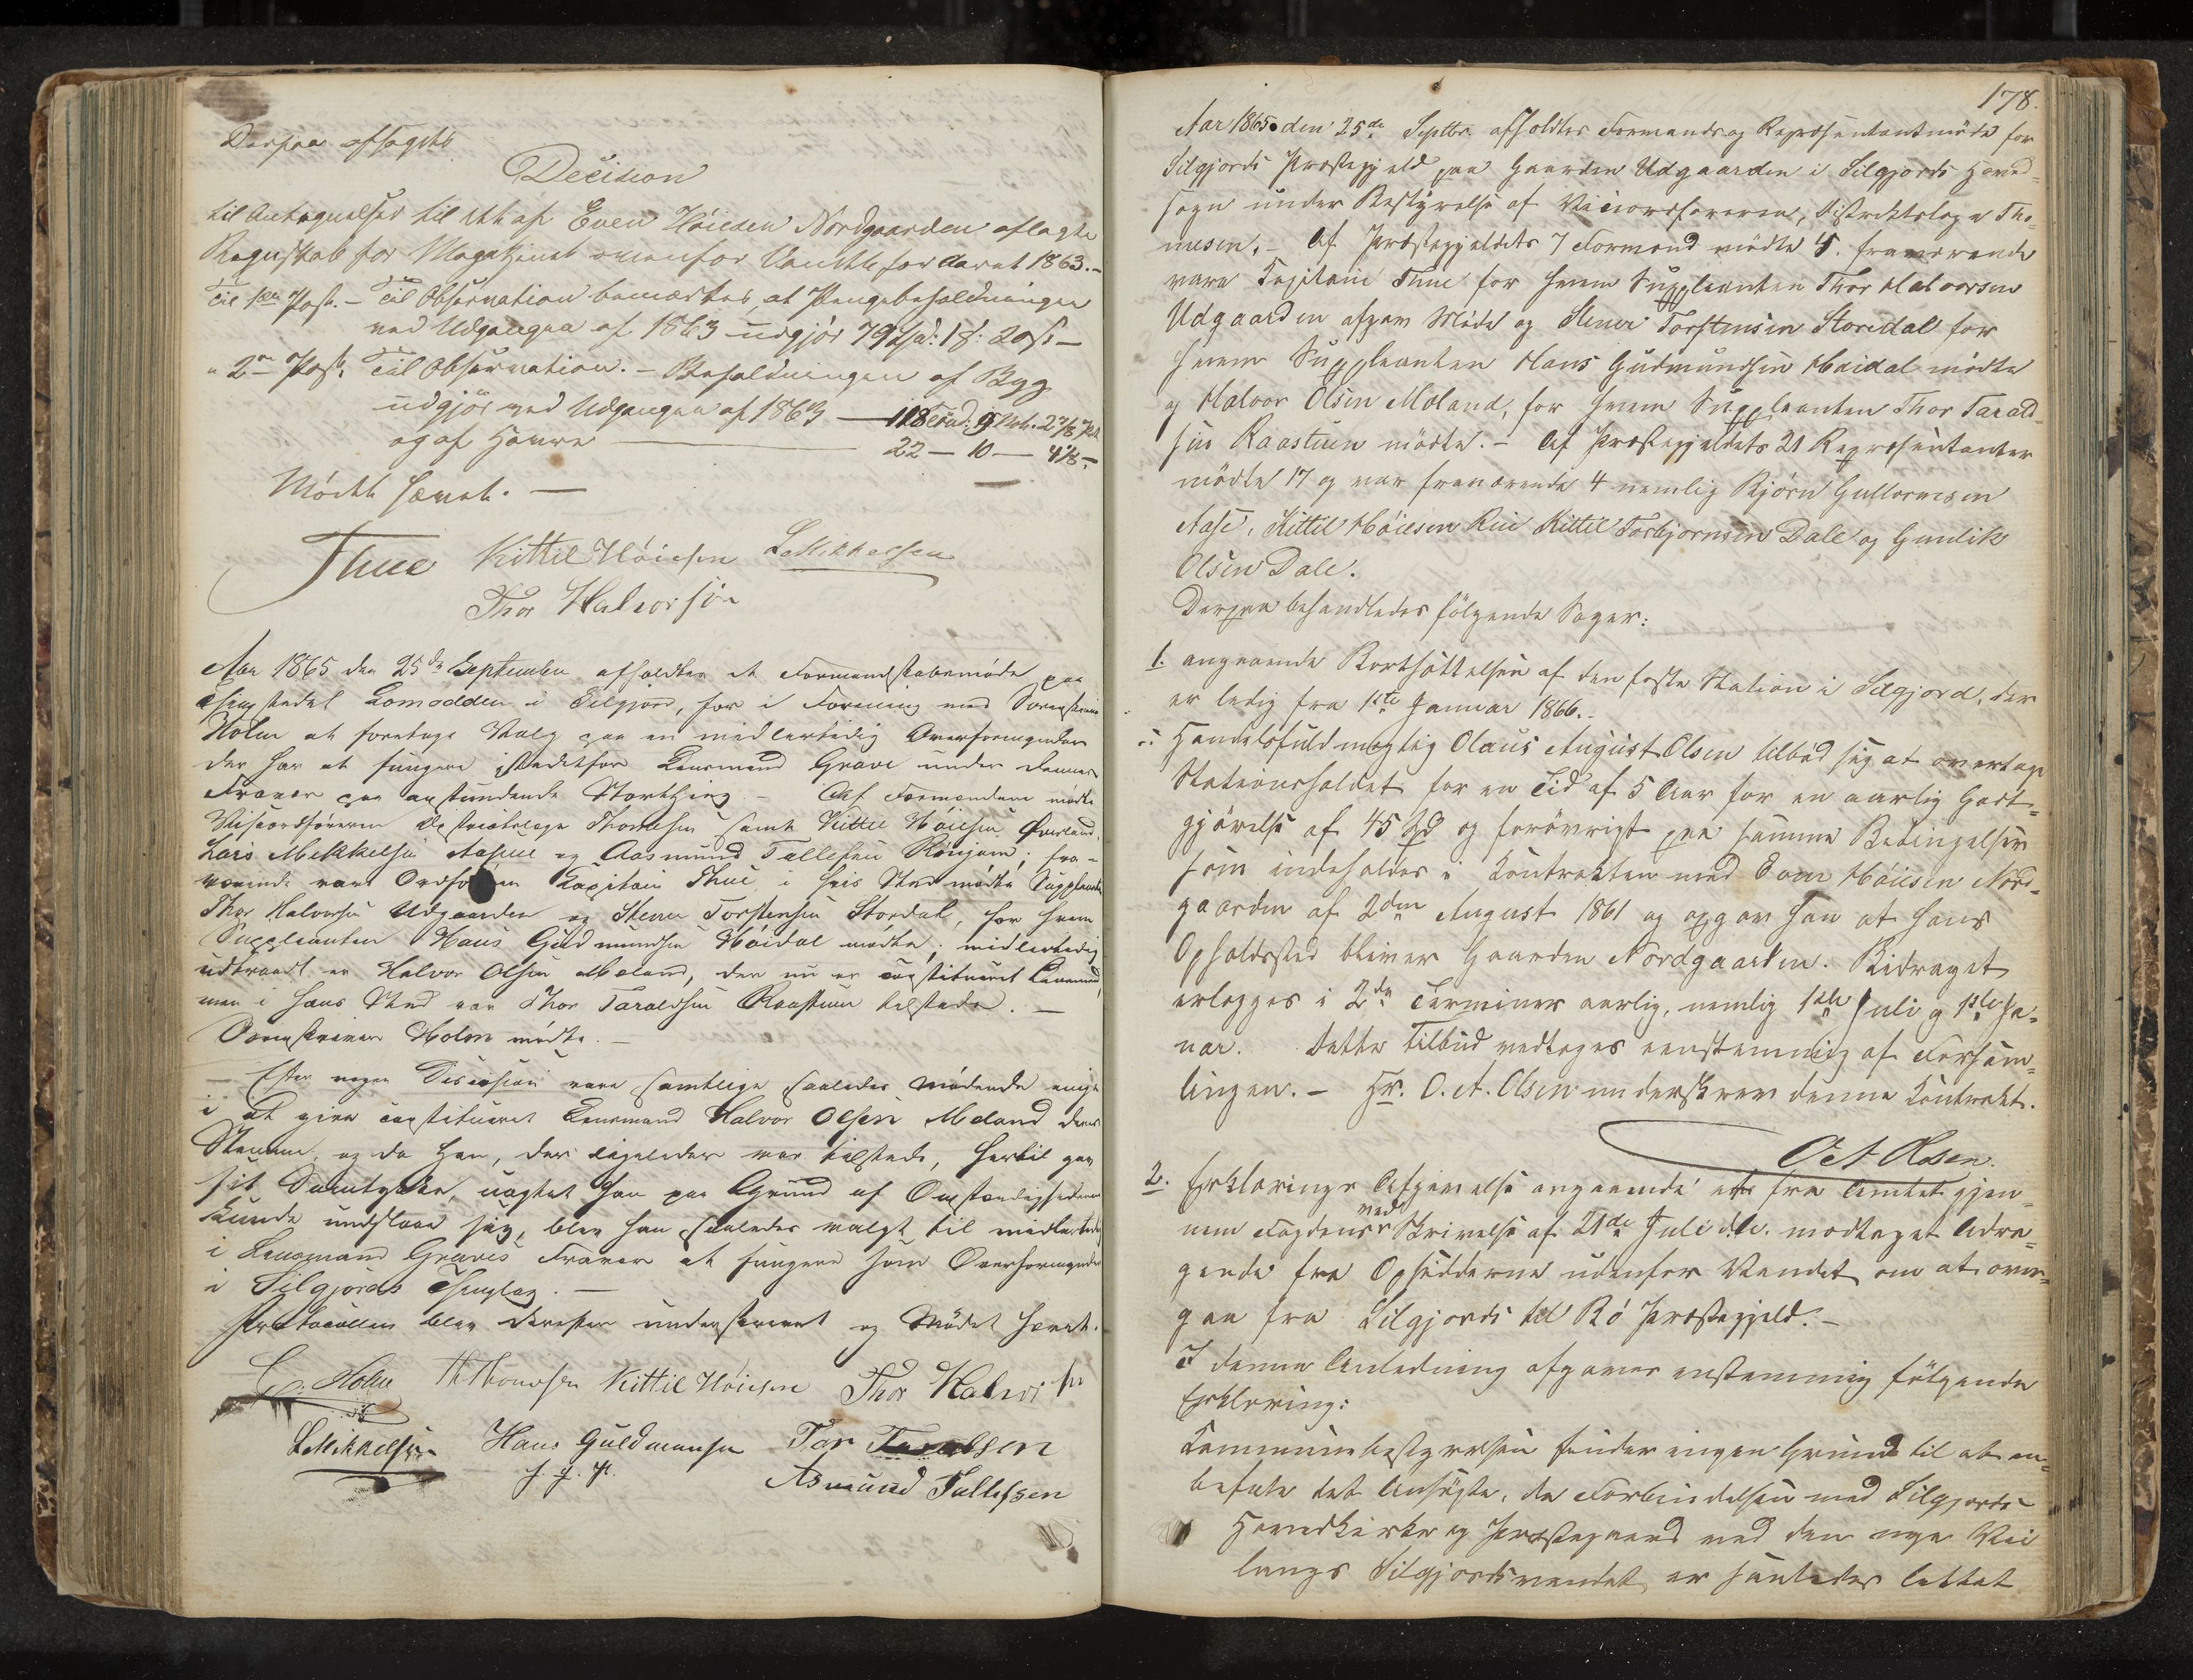 Derpaa afsagdes
Decision
til Antegnelser til det af Even Høiesen Nordgaarden aflagte
Regnskab for Magazinet ovenfor Vandet for Aaret 1863.-
Til 1ste Post. - Til Observation bemærkes, at Pengebeholdningen
ved Udgangen af 1863 udgjør 79 Spd: 1 : 20 s -
" 2den Post. Til Observation. - Beholdningen af Byg
udgjør ved Udgangen af 1863 — 118 Tønd: 9 2 7/8
og af Havre — 22 — 10 — 4 1/8 -
Mødet hævet. —
Thue Kittil Höiesen LMikkelsen
Thor Halvorsön
Aar 1865 den 25de September afholdtes et Formandskabsmøde paa
Thingstedet Lomodden i Silgjord, for i Forening med Sorenskriver
Holm at foretage Valg paa en midlertidig Overformynder
der har at fungere istedetfor Lensmand Grave under dennes
Fravær paa anstundende Storthing - Af Formændene mødte
Viceordføreren Distriktslæge Thomesen samt Kittil Høiesen Øverland,
Lars Mikkelsen Aasene og Aasmund Tallefsen ; fra-
værende vare Ordføreren Kapitain Thue, i hvis Sted mødte Suppleanten
Thor Halvorsen Udgaarden og Stener Torstensen Stordal, for hvem
Suppleanten Hans Guldmundsen Höidal mødte; midlertidig
udtraadt er Halvor Olsen Moland, der nu er constitueret Lensmand,
men i hans Sted var Thor Taraldsen Raastuen tilstede. —
Sorenskriver Holm mødte. —
— Efter nogen Discusion vare samtlige saaledes Mødende enige
i at give constitueret Lensmand Halvor Olsen Moland deres
Stemme, og da han, der ligeledes var tilstede, hertil gav
sit Samtykke, uagtet han paa Grund af Omstændighederne
kunde undslaae sig, blev han saaledes valgt til midlertidig
i Lensmand Graves Fravær at fungere som Overformynder
i Silgjords Thinglag. —
Protocollen blev derefter underskrevet og Mødet hævet.
Holm Th Thomesen Kittil Höiesen Thor Halvorsen
LMikkelsen Hans Guldmunsen Tor Taralsen
Asmund Tallefsen
178.
Aar 1865 den 25de Septbr. afholdtes Formands og Repræsentantmøde for
Silgjords Præstegjeld paa Gaarden Udgaarden i Silgjords Hoved-
sogn under Bestyrelse af Viceordføreren, Distriktslæge Tho-
mesen. - Af Præstegjeldets 7 Formænd mødte 4. fraværende
vare Capitain Thue for hvem Suppleanten Thor Halvorsen
Udgaarden afgav Møde og Stener Torstensen Storedal for
hvem Suppleanten Hans Gudmundsen Høidal mødte
og Halvor Olsen Moland, for hvem Suppleanten Thor Tarald-
sen Raastuen mødte. - Af Præstegjeldets 21 Repræsentanter
mødte 17 og var fraværende 4 nemlig Bjørn Guttormsen
Aase, Kittil Höiesen Rue Kittil Torbjørnsen Dale og Gunlik
Olsen Dale.
Derpaa behandledes følgende Sager:
1. angaaende Bortsættelsen af den faste Station i Silgjord, der
er ledig fra 1ste Januar 1866.
Handelsfuldmægtig Olaus August Olsen tilbød sig at overtage
Stationsholdet for en Tid af 5 Aar for en aarlig Godt-
gjørelse af 45 Spd og forøvrigt paa samme Betingelser
som indeholdes i Kontrakten med Even Höiesen Nord-
gaarden af 2den August 1861 og opgav han at hans
Opholdssted bliver Gaarden Nordgaarden. Bidraget
erlægges i 2de Terminer aarlig, nemlig 1ste Juli og 1ste Ja-
nuar. Dette Tilbud vedtoges eenstemmig af Forsam-
lingen. - Hr. O. A. Olsen underskrev denne Kontrakt.
O A Olsen.
2. Erklærings Afgivelse angaaende et fra Amtet gjen-
nem Fogden ved Skrivelse af 21de Juli d.A. modtaget Andra-
gende fra Opsidderne udenfor Vandet om at over-
gaa fra Silgjords til Bø Præstegjeld. -
I denne Anledning afgaves enstemmig følgende
Erklæring:
Kommunebestyrelsen finder ingen Grund til at an-
befale det Ansøgte, da Forbindelsen med Silgjords
Hovedkirke og Præstegaard ved den nye Vei
langs Silgjordsvandet er saaledes lettet